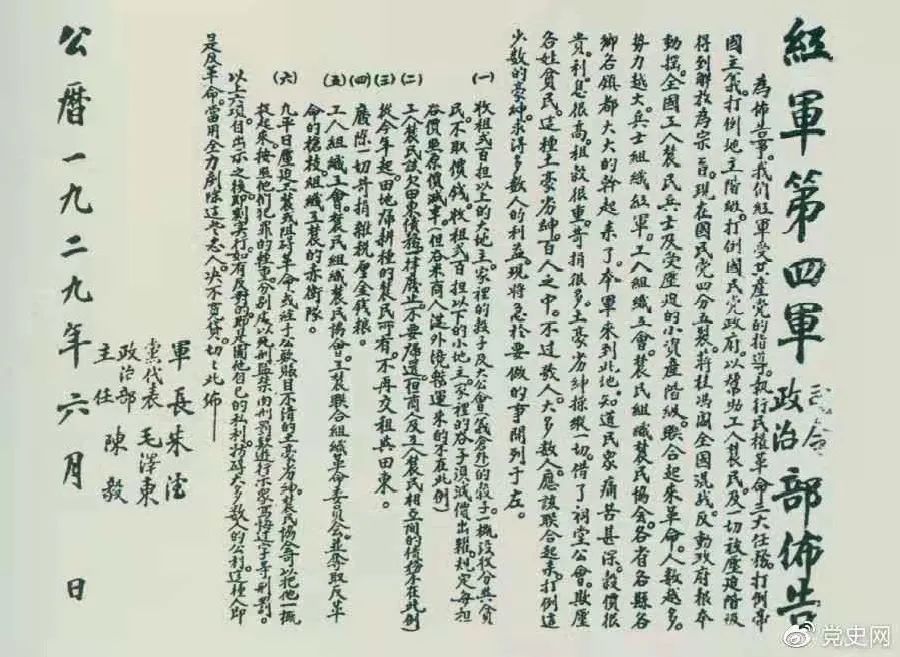 紅軍第四軍司令部政治部佈告
為佈告事。我們紅軍受共產黨的指導。執行民權革命三大任務。打倒帝
國主義。打倒地主階級。打倒國民黨政府。以幫助工人農民及一切被壓迫階級
得到解放為宗旨。現在國民党四分五裂。蔣桂馮閻全国混战。反動政府根本
動搖。全國工人農民兵士及受壓迫的小資產階級。聯合起來革命。人數越多。
勢力越大。兵士組織紅軍。工人組織工會。農民組織農民協会。各省各縣各
鄉各鎮都大大的幹起來了。本軍來到此地。知道民众痛苦甚深。穀價很
貴。利息很高。租穀很重。苛捐很多。土豪劣紳操縱一切。借了祠堂公會。欺壓
各姓貧民。這種土豪劣紳。百人之中。不过数人。大多数人應該联合起来。打倒這
少数的豪紳。求得多数人的利益。現將急於要做的事開列于左。
(一) 收租弍百担以上的大地主。家裡的穀子及大公會(義倉外)的穀子。一概沒收分與貧
民。不取價钱。收租弍百担以下的小地主。家裡的谷子須減價出糶。規定每担
谷價照原價減半。(但谷米商人從外境办運来的不在此例)
(二) 工人農民該欠田東債務。一律廢止。不要歸還。(但商人及工人農民相互間的債務不在此例)
(三) 從今年起。田地歸耕種的農民所有。不再交租與田東。
(四) 廢除一切苛捐雜稅厘金钱粮。
(五) 工人組織工會。農民組織農民協會。工農联合組織革命委員会。並奪取反革
命的槍枝。組織工農的赤衛隊。
(六) 凡平日壓迫工農或阻碍革命。或經手公欵賬目不清的土豪劣紳。農民協會可以把他一概
捉起来。按照他們犯罪的輕重。分别處以死刑監禁肉刑罰款遊行示眾寫悔过字等刑罰。
以上六項。自出示之後。即刻实行。如有反對的。即是圖他自己的私利。妨碍大多数人的公利。這種人即
是反革命。當用全力剷除這些恶人。决不寬貸。切切此佈——
軍長朱德
黨代表毛澤東
政治部主任陳毅
公曆一九二九年六月 日
党史网